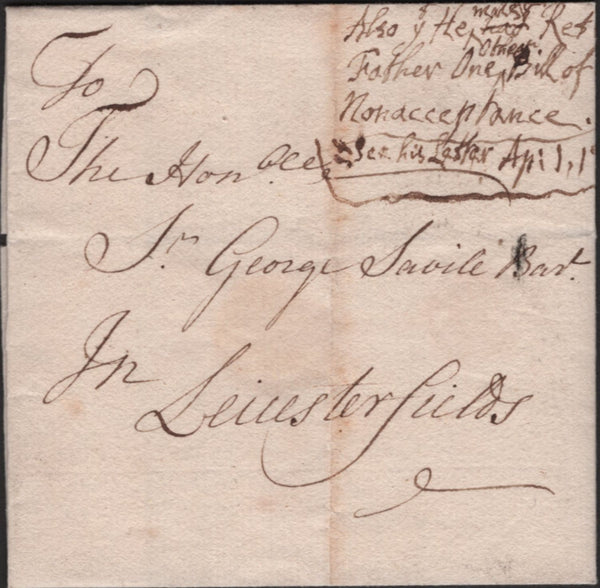 Also yt He had Ret
Other
Father One Bill of
Nonacceptance.
See his Letter Apr: 1, 1
To
The Honble
Sr George Savile Bart
In
Leicesterfields